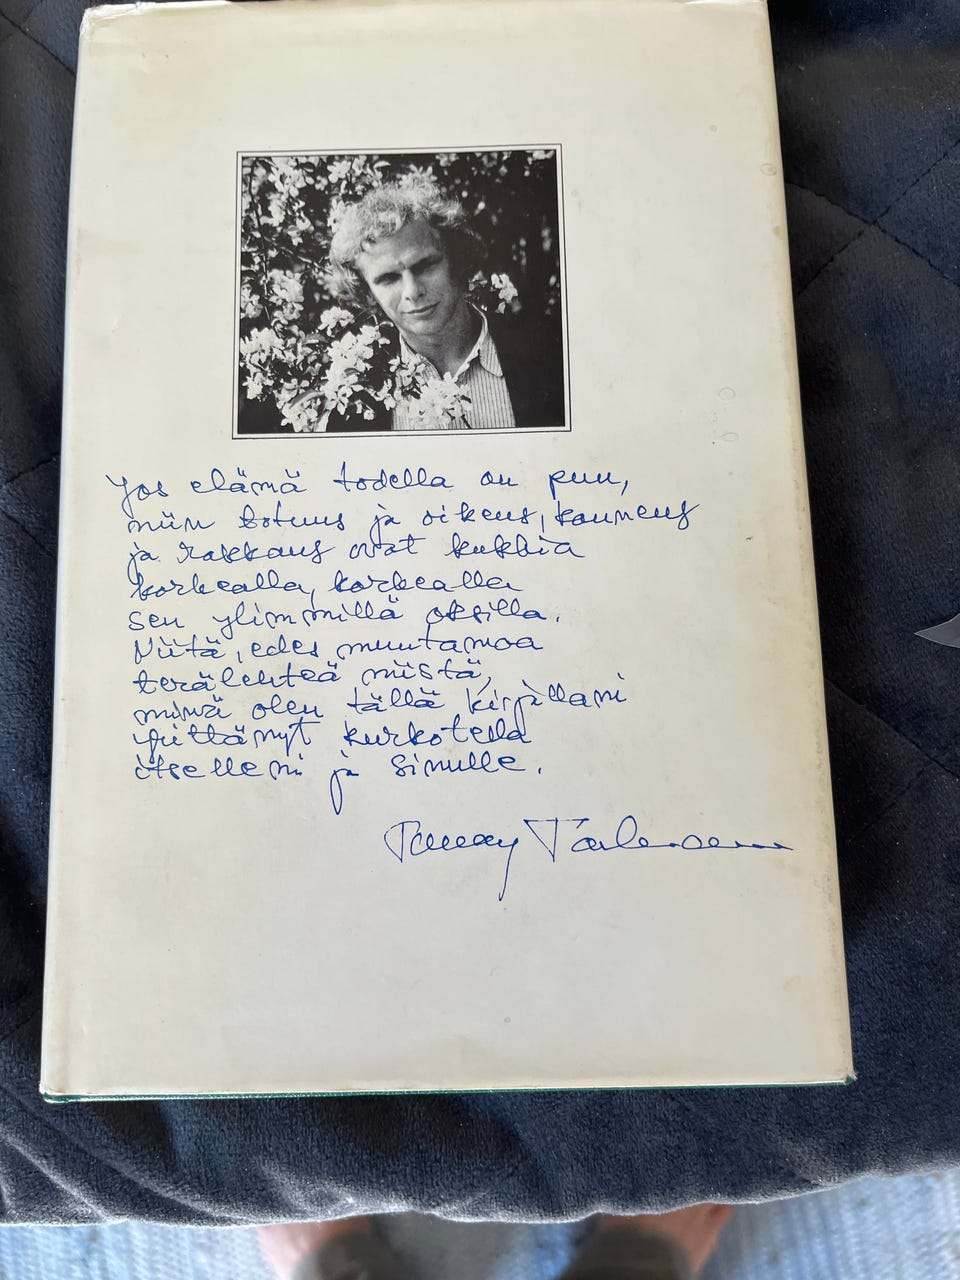 Jos elämä todella on puu,
niin totuus ja oikeus, kauneus
ja rakkaus ovat kukkia
korkealla, korkealla
sen ylimmillä oksilla.
Niitä, edes muutamaa
terälehteä niistä,
minä olen tällä kirjallani
yrittänyt kurkotella
itselleni ja sinulle.
Tommy Tabermann